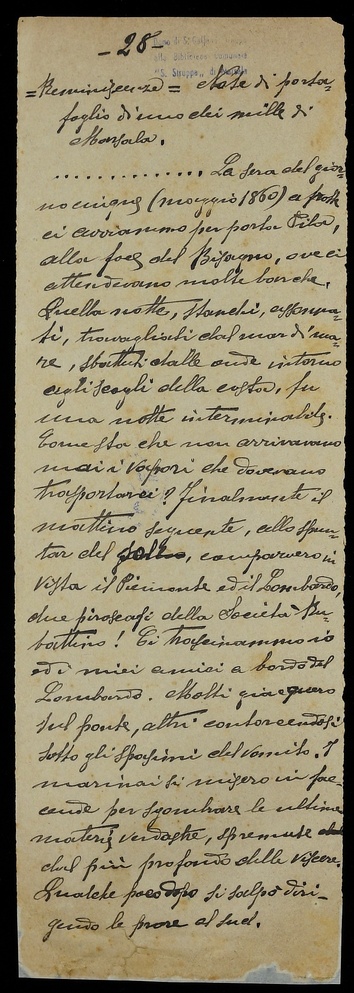 -28-
Dono di
alla biblioteca comunale
"S. Giuseppe"
=Reminiscenze= Note di porta-
foglio di uno dei mille di
Marsala.
............. La sera del gior-
no cinque (maggio 1860) a frotte
ci avviammo per porta Pila,
alla foce del Bisagno, ove ci
attendevano molte barche.
Quella notte, stanchi, assonna-
ti, travagliati dal mar di ma-
re, sbattuti dalle onde intorno
agli scogli della costa, fu
una notte interminabile.
Come sta che non arrivavano
mai i vapori che dovevano
trasportarci? Finalmente il
mattino seguente, allo spun-
tar del sole, comparvero in
vista il Piemonte ed il Lombardo,
due piroscafi della Società Ru-
battino! Ci trascinammo io
ed i miei amici a bordo del
Lombardo. Molti giacquero
sul ponte, altri contorcendosi
sotto gli spasimi del vomito. I
marinai si misero in fac-
cende per sgombrare le ultime
materie verdastre, spremute
dal più profondo delle viscere.
Qualche poco dopo si salpò diri-
gendo le prore al sud.